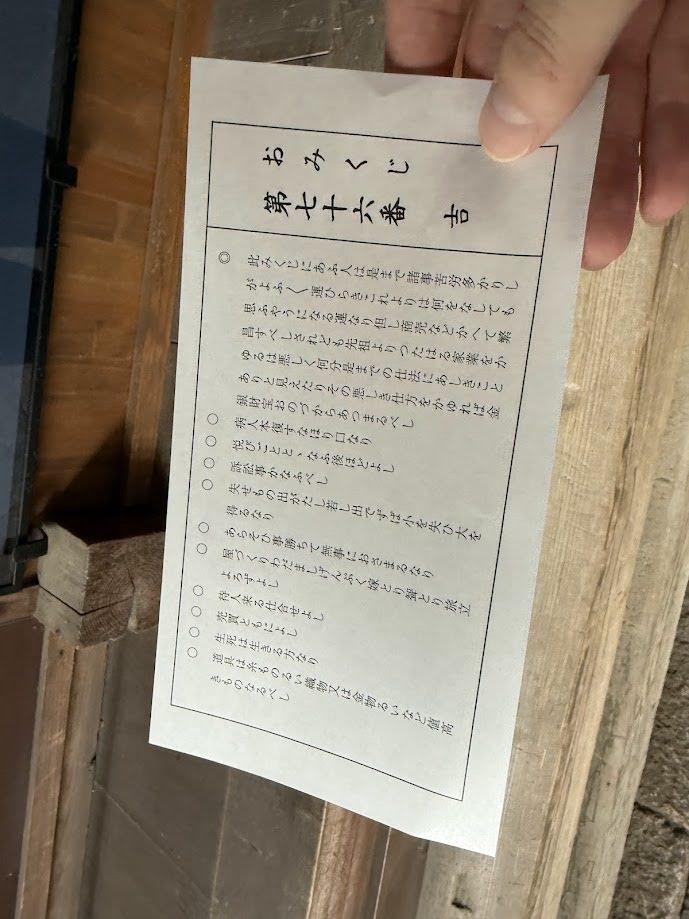 おみくじ
第七十六番 吉
◎ 此みくじにあふ人は是まで諸事苦労多かりし
がよふ〱運ひらきこれよりは何をなしても
思ふやうになる運なり但し商売などかへて繁
昌すべしされども先祖よりつたはる家業をか
ゆるは悪しく何分是までの仕法にあしきこと
ありと見えたりその悪しき仕方をかゆれば金
銀財宝おのづからあつまるべし
○ 病人本復すなほり口なり
○ 悦びごとととゝなふ後ほどよし
○ 訴訟事かなふべし
○ 失せもの出がたし若し出でずば小を失ひ大を
得るなり
○ あらそひ事勝ちて無事におさまるなり
○ 屋づくりわたましげんぶく嫁とり聟とり旅立
よろずよし
○ 待人来る仕合せよし
○ 売買ともによし
○ 生死は生きる方なり
○ 道具は糸ものるい織物又は金物るいなど値高
きものなるべし